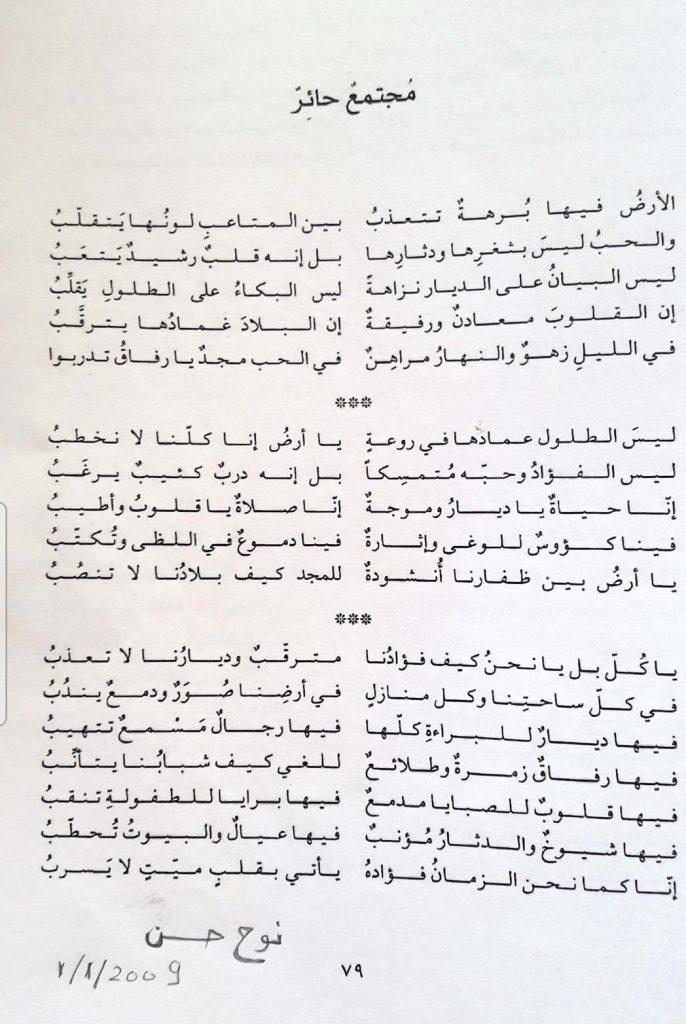 مُجتمعٌ حائِرٌ
الأرضُ فيها بُرهةٌ تتعذبُ بين المتاعبِ لونُها يَتقلّبُ
والحبُ ليسَ بثغرِها ودثارِها بل إنه قلبٌ رشيدٌ يَتعَبُ
ليس البيانُ على الديار نزاهةً ليس البكاءُ على الطلولِ يَقلِّبُ
إن القلوبَ معادنٌ ورفيقةٌ إن البلادَ غمادُها يترقَّبُ
في الليلِ زهوٌ والنهارُ مراهِنٌ في الحب مجدٌ يا رفاقُ تدربوا
***
ليسَ الطلول عمادُها في روعةٍ يا أرضُ إنا كلّنا لا نخطبُ
ليس الفؤادُ وحبّه مُتمسِكاً بل إنه دربٌ كئيبٌ يرغَبُ
إنّا حياةٌ يا ديارُ وموجةٌ إنّا صلاةٌ يا قلوبُ وأطيبُ
فينا كؤوسٌ للوغى وإثارةٌ فينا دموعٌ في اللظى وتُكتّبُ
يا أرضُ بين ظفارنا أُنشودةٌ للمجد كيف بلادُنا لا تنصُبُ
***
يا كُلّ بل يا نحنُ كيف فؤادُنا مترقّبٌ وديارُنا لا تعذبُ
في كلّ ساحتِنا وكل منازلٍ في أرضِنا صُوَرٌ ودمعٌ يندُبُ
فيها ديارٌ للبراءةِ كلّها فيها رجالٌ مَسْمعٌ تتهيبُ
فيها رفاقٌ زمرةٌ وطلائعٌ للغي كيف شبابُنا يتأنَّبُ
فيها قلوبٌ للصبايا مدمعٌ فيها برايا للطفولةِ تنقبُ
فيها شيوخٌ والدثارُ مُؤنبٌ فيها عيالٌ والبيوتُ تُحطّبُ
إنّا كما نحن الزمانُ فؤادهُ يأتي بقلبٍ ميّتٍ لا يَسربُ
نوح حسن
1/1/2009
٧٩